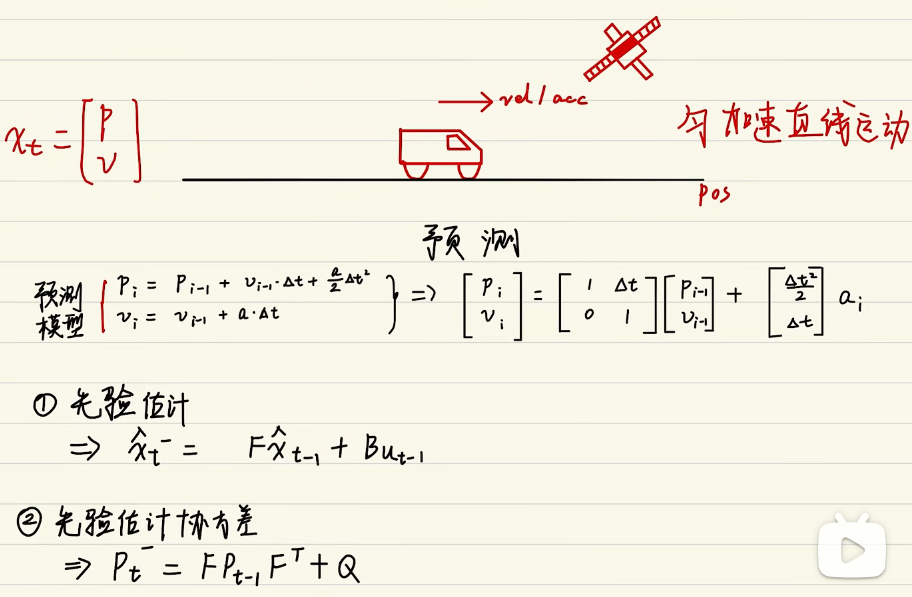 x_t = [p v]
→ vel/acc
匀加速直线运动
pos
预测
预测模型 { p_i = p_{i-1} + v_{i-1}·Δt + a/2 Δt²
v_i = v_{i-1} + a·Δt } ⇒ [p_i v_i] = [1 Δt 0 1] [p_{i-1} v_{i-1}] + [Δt²/2 Δt] a_i
① 先验估计
⇒ x̂_t⁻ = F x̂_{t-1} + B u_{t-1}
② 先验估计协方差
⇒ P_t⁻ = F P_{t-1} F^T + Q